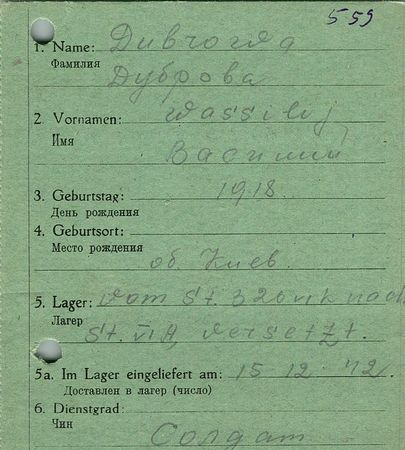 559
1. Name: Дивчогяд
Фамилия
Дуброва
2. Vornamen: Wassilij
Имя
Василий
3. Geburtstag: 1918.
День рождения
4. Geburtsort:
Место рождения
об. Киев.
5. Lager: Vom St. 326 VI K nach
Лагер
St. VI A versetzt.
5a. Im Lager eingeliefert am: 15 12 42.
Доставлен в лагер (число)
6. Dienstgrad:
Чин
Солдат